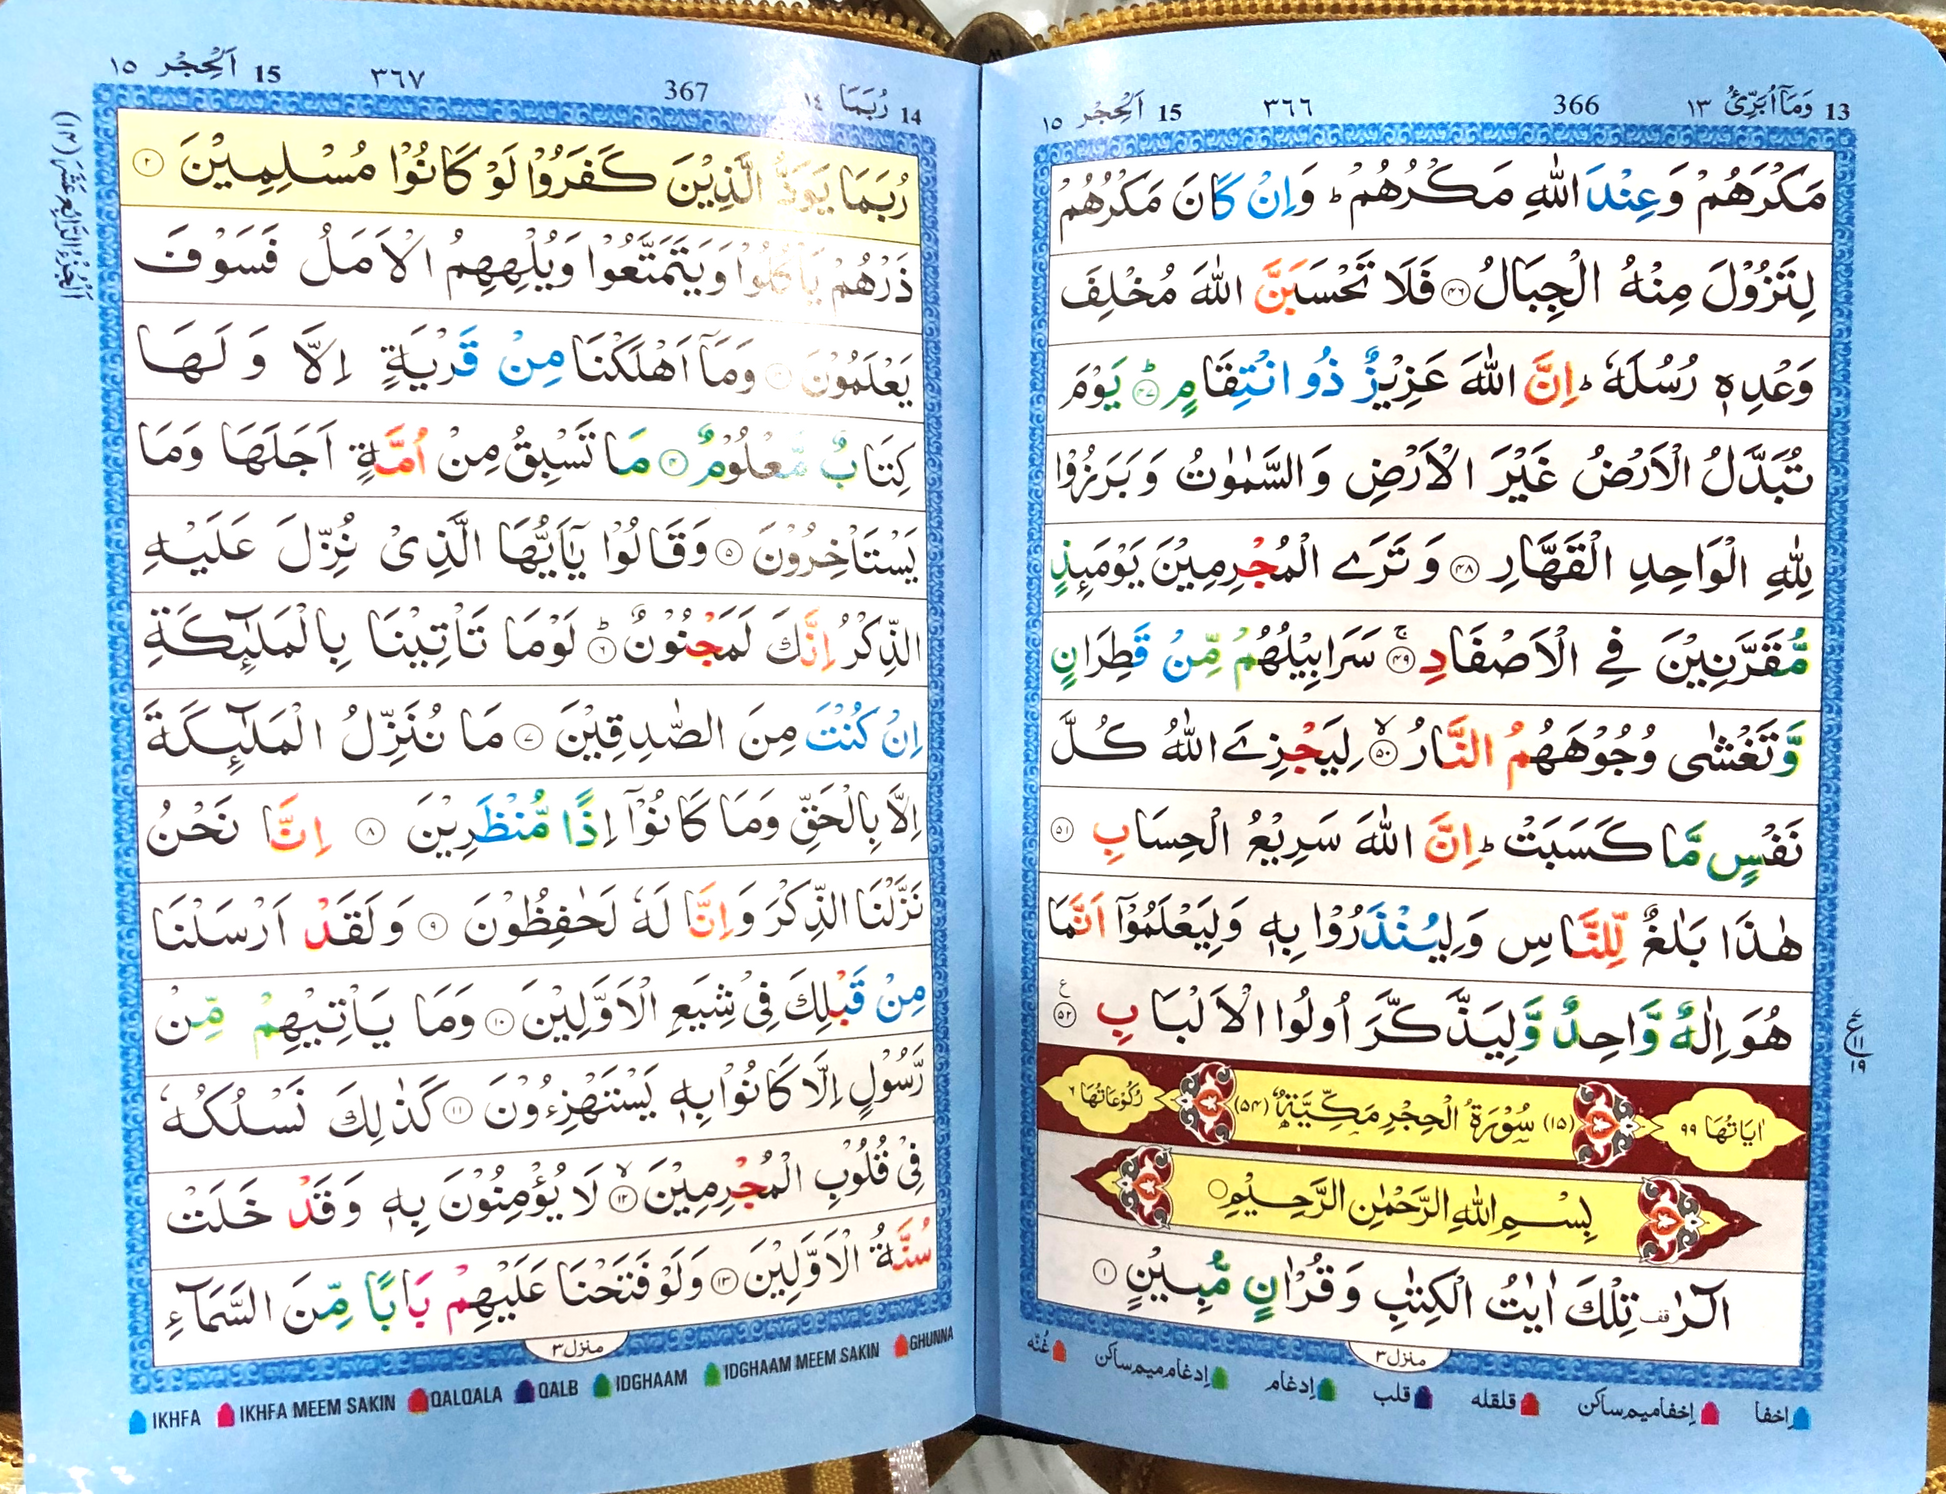 13 وَمَاۤ اُبَرِّئُ ١٣
366
٣٦٦
15 اَلْحِجْر ١٥
مَكْرَهُمْ وَعِنْدَ اللّٰهِ مَكْرُهُمْ ؕ وَاِنْ كَانَ مَكْرُهُمْ
لِتَزُوْلَ مِنْهُ الْجِبَالُ ۴۶ فَلَا تَحْسَبَنَّ اللّٰهَ مُخْلِفَ
وَعْدِهٖ رُسُلَهٗ ؕ اِنَّ اللّٰهَ عَزِيْزٌ ذُو انْتِقَامٍ ؕ ۴۷ يَوْمَ
تُبَدَّلُ الْاَرْضُ غَيْرَ الْاَرْضِ وَالسَّمٰوٰتُ وَبَرَزُوْا
لِلّٰهِ الْوَاحِدِ الْقَهَّارِ ۴۸ وَتَرَى الْمُجْرِمِيْنَ يَوْمَىِٕذٍ
مُّقَرَّنِيْنَ فِي الْاَصْفَادِ ۚ ۴۹ سَرَابِيْلُهُمْ مِّنْ قَطِرَانٍ
وَّتَغْشٰى وُجُوْهَهُمُ النَّارُ ۙ ۵۰ لِيَجْزِىَ اللّٰهُ كُلَّ
نَفْسٍ مَّا كَسَبَتْ ؕ اِنَّ اللّٰهَ سَرِيْعُ الْحِسَابِ ۵۱
هٰذَا بَلٰغٌ لِّلنَّاسِ وَلِيُنْذَرُوْا بِهٖ وَلِيَعْلَمُوْۤا اَنَّمَا
هُوَ اِلٰهٌ وَّاحِدٌ وَّلِيَذَّكَّرَ اُولُوا الْاَلْبَابِ ع ۵۲
ع ١١ ١٩
اٰيَاتُهَا ٩٩
(١٥) سُوْرَةُ الْحِجْرِ مَكِّيَّةٌ (۵۴)
رُكُوْعَاتُهَا ٦
بِسْمِ اللّٰهِ الرَّحْمٰنِ الرَّحِيْمِ
الٓرٰ ۫قف تِلْكَ اٰيٰتُ الْكِتٰبِ وَقُرْاٰنٍ مُّبِيْنٍ ١
منزل ٣
اِخفا اِخفامیم ساکن قلقله قلب اِدغام اِدغام میم ساکن غُنّه
14 رُبَمَا ١٤
367
٣٦٧
15 اَلْحِجْر ١٥
اَلْجُزْءُ الرَّابِعَ عَشَرَ (١٤)
رُبَمَا يَوَدُّ الَّذِيْنَ كَفَرُوْا لَوْ كَانُوْا مُسْلِمِيْنَ ٢
ذَرْهُمْ يَاْكُلُوْا وَيَتَمَتَّعُوْا وَيُلْهِهِمُ الْاَمَلُ فَسَوْفَ
يَعْلَمُوْنَ ٣ وَمَاۤ اَهْلَكْنَا مِنْ قَرْيَةٍ اِلَّا وَلَهَا
كِتَابٌ مَّعْلُوْمٌ ۴ مَا تَسْبِقُ مِنْ اُمَّةٍ اَجَلَهَا وَمَا
يَسْتَاْخِرُوْنَ ۵ وَقَالُوْا يٰۤاَيُّهَا الَّذِىْ نُزِّلَ عَلَيْهِ
الذِّكْرُ اِنَّكَ لَمَجْنُوْنٌ ؕ ۶ لَوْمَا تَاْتِيْنَا بِالْمَلٰٓىِٕكَةِ
اِنْ كُنْتَ مِنَ الصّٰدِقِيْنَ ۷ مَا نُنَزِّلُ الْمَلٰٓىِٕكَةَ
اِلَّا بِالْحَقِّ وَمَا كَانُوْۤا اِذًا مُّنْظَرِيْنَ ۸ اِنَّا نَحْنُ
نَزَّلْنَا الذِّكْرَ وَاِنَّا لَهٗ لَحٰفِظُوْنَ ۹ وَلَقَدْ اَرْسَلْنَا
مِنْ قَبْلِكَ فِىْ شِيَعِ الْاَوَّلِيْنَ ۱۰ وَمَا يَاْتِيْهِمْ مِّنْ
رَّسُوْلٍ اِلَّا كَانُوْا بِهٖ يَسْتَهْزِءُوْنَ ۱۱ كَذٰلِكَ نَسْلُكُهٗ
فِىْ قُلُوْبِ الْمُجْرِمِيْنَ ۙ ۱۲ لَا يُؤْمِنُوْنَ بِهٖ وَقَدْ خَلَتْ
سُنَّةُ الْاَوَّلِيْنَ ۱۳ وَلَوْ فَتَحْنَا عَلَيْهِمْ بَابًا مِّنَ السَّمَآءِ
منزل ٣
IKHFA IKHFA MEEM SAKIN QALQALA QALB IDGHAAM IDGHAAM MEEM SAKIN GHUNNA